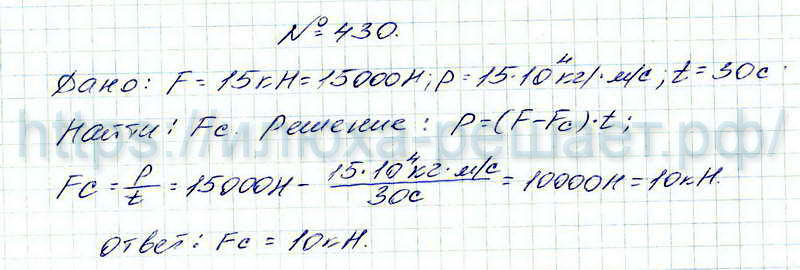 №430.
Дано: F = 15кН = 15000Н; p = 15·10⁴кг/·м/с; t = 30с.
Найти: Fc. Решение: p = (F-Fc)·t;
Fc = p/t = 15000Н - 15·10⁴кг·м/с / 30с = 10000Н = 10кН.
ответ: Fc = 10кН.
https://илюха-решает.рф/